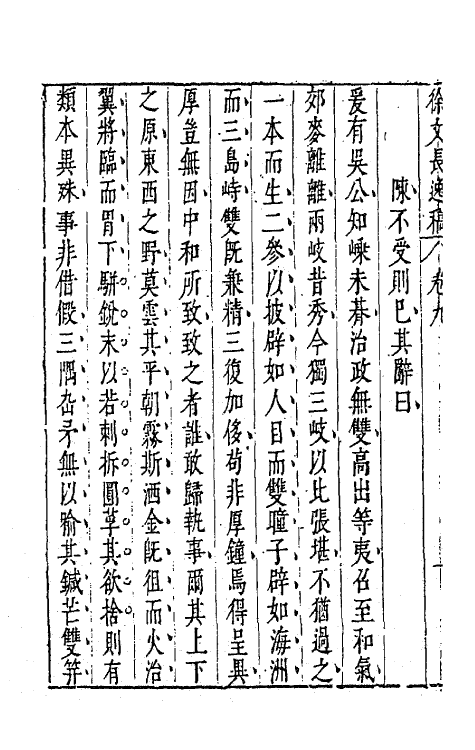 徐文長逸稿 卷九
陳不受則已其辭曰
爰有吳公知嵊未朞治政無雙高出等夷召至和氣
郊麥離離兩岐昔秀今獨三岐以比張堪不猶過之
一本而生二參以披辟如人目而雙瞳子辟如海洲
而三島峙雙旣兼精三復加侈苟非厚鐘焉得呈異
厚豈無因中和所致致之者誰敢歸執事爾其上下
之原東西之野莫雲其平朝霧斯洒金旣徂而火治
翼將臨而胃下駢銳末以若刺拆圓莩其欲捨則有
類本異殊事非借假三隅厹矛無以喻其鍼芒雙笄